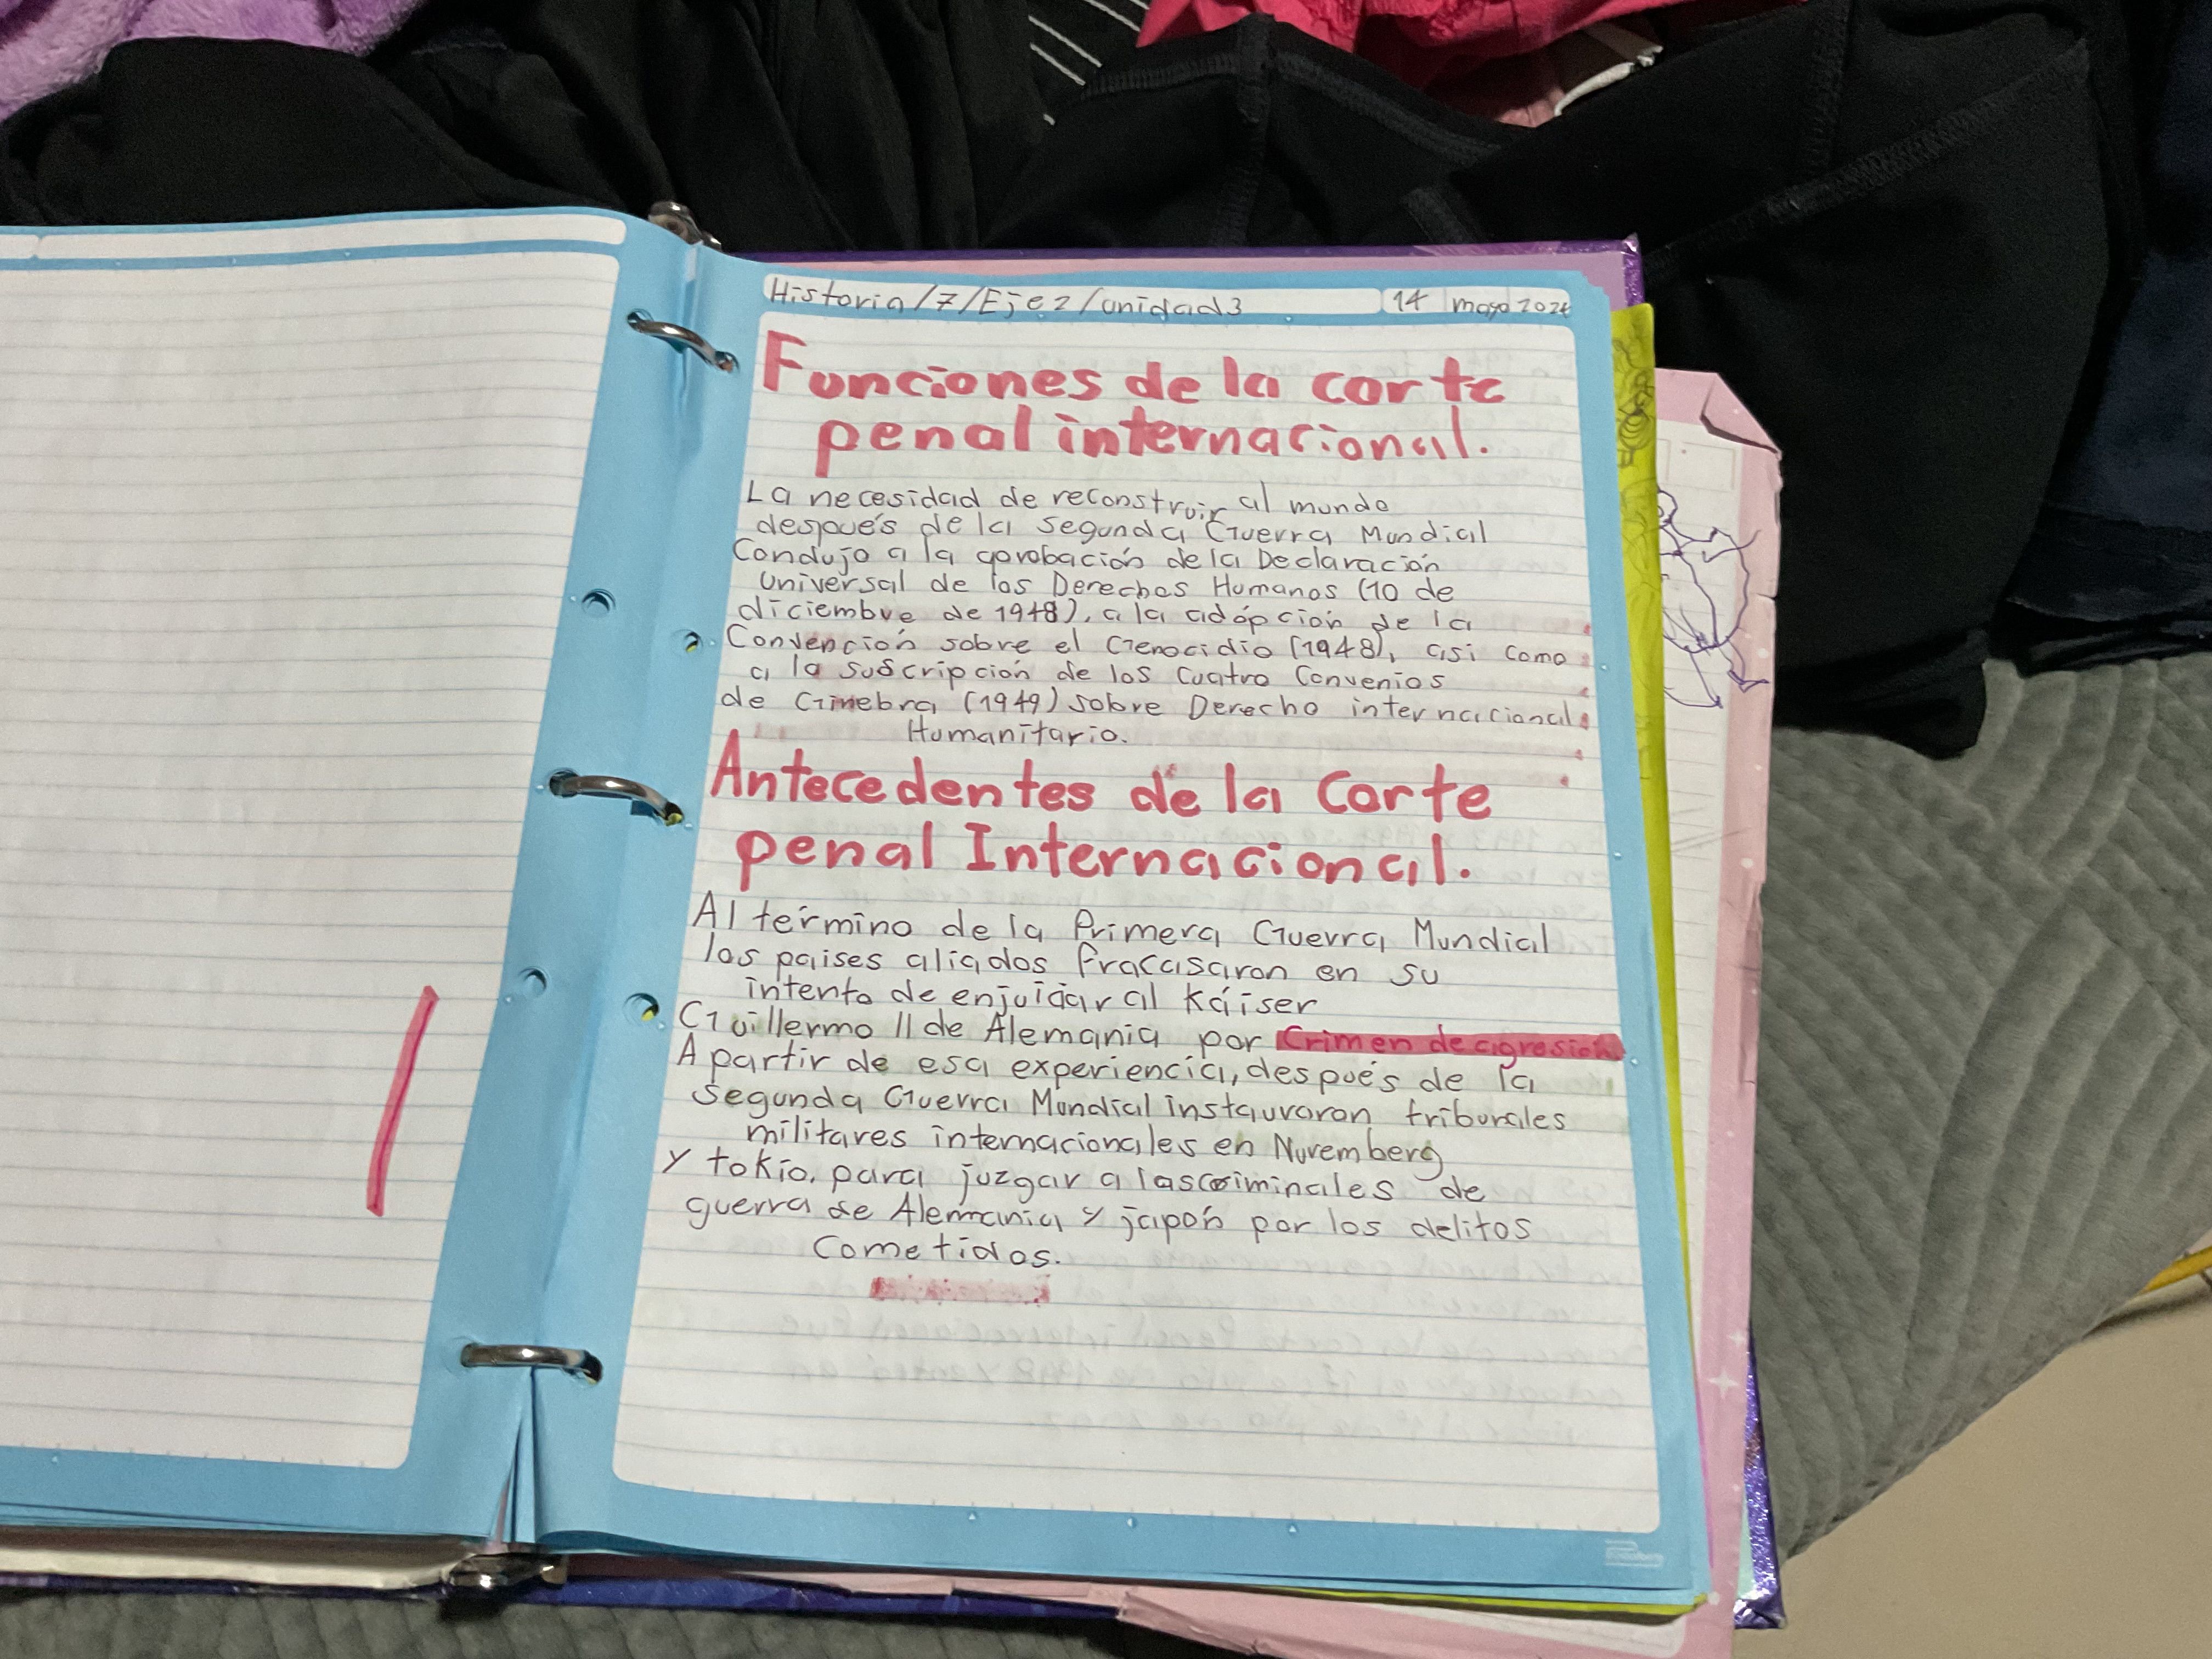 Historia/7/Eje2/unidad3 14 mayo 2024
Funciones de la corte
penal internacional.
La necesidad de reconstruir al mundo
después de la segunda Guerra Mundial
Condujo a la aprobación de la Declaración
Universal de los Derechos Humanos (10 de
diciembre de 1948), a la adópción de la
Convención sobre el Genocidio (1948), asi como
a la suscripción de los cuatro Convenios
de Ginebra (1949) sobre Derecho internacional
Humanitario.
Antecedentes de la Corte
penal Internacional.
Al término de la Primera Guerra Mundial
los paises aliados fracasaron en su
intento de enjuiciar al Káiser
Guillermo II de Alemania por Crimen de agresion
A partir de esa experiencia, después de la
Segunda Guerra Mundial instauraron tribunales
militares internacionales en Nuremberg
y tokio, para juzgar a los criminales de
guerra de Alemania y japón por los delitos
Cometidos.